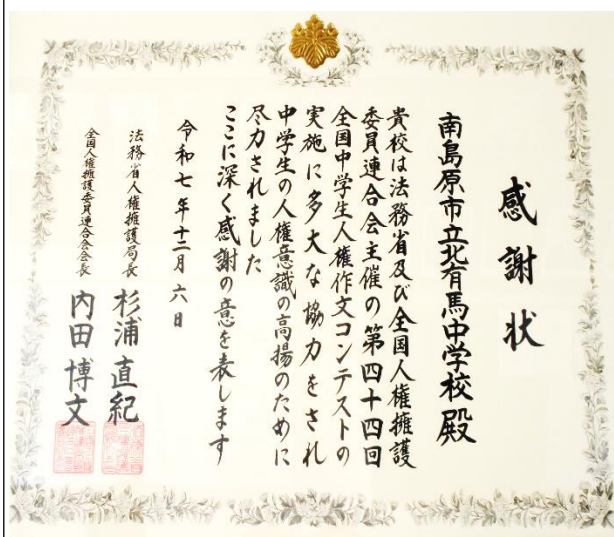 感謝状
南島原市立北有馬中学校殿
貴校は法務省及び全国人権擁護
委員連合会主催の第四十四回
全国中学生人権作文コンテストの
実施に多大な協力をされ
中学生の人権意識の高揚のために
尽力されました
ここに深く感謝の意を表します
令和七年十二月六日
法務省人権擁護局長 杉浦直紀
全国人権擁護委員連合会会長 内田博文